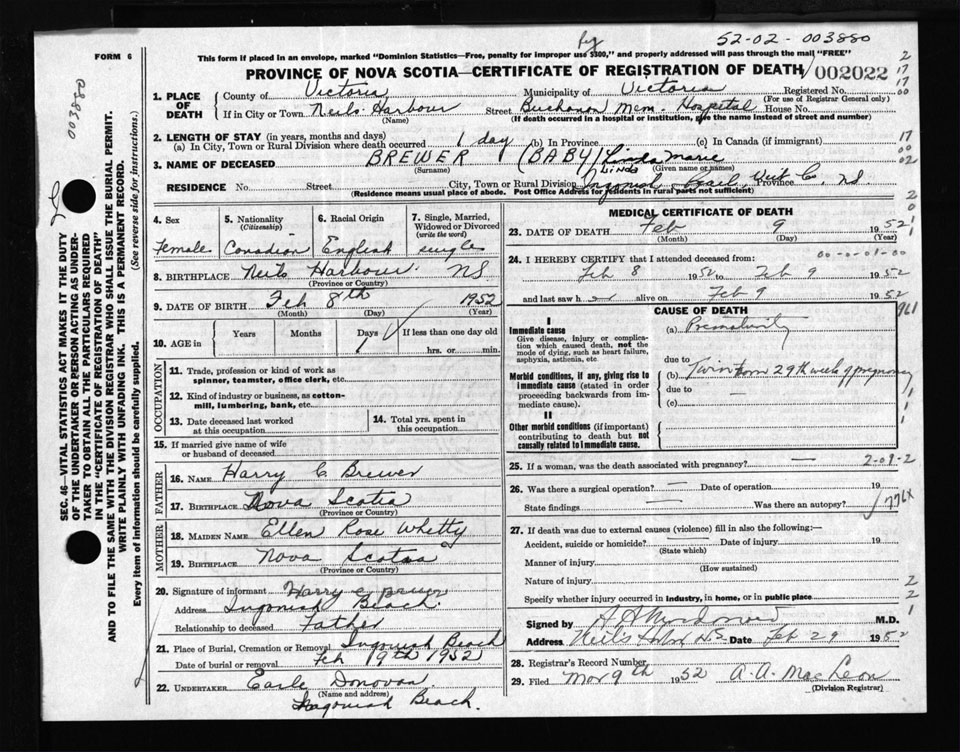 52-02-003880
FORM 6
This form if placed in an envelope, marked "Dominion Statistics—Free, penalty for improper use $300," and properly addressed will pass through the mail "FREE"
PROVINCE OF NOVA SCOTIA—CERTIFICATE OF REGISTRATION OF DEATH
002022
003880
SEC. 46—VITAL STATISTICS ACT MAKES IT THE DUTY
OF THE UNDERTAKER OR PERSON ACTING AS UNDER-
TAKER TO OBTAIN ALL THE PARTICULARS REQUIRED
IN THE "CERTIFICATE OF REGISTRATION OF DEATH"
AND TO FILE THE SAME WITH THE DIVISION REGISTRAR WHO SHALL ISSUE THE BURIAL PERMIT.
WRITE PLAINLY WITH UNFADING INK. THIS IS A PERMANENT RECORD.
Every item of information should be carefully supplied. (See reverse side for instructions.)
1. PLACE OF DEATH
County of Victoria Municipality of Victoria Registered No.
(For use of Registrar General only)
If in City or Town Neils Harbour Street Buchanon Mem. Hospital House No.
(Name) (If death occurred in a hospital or institution, give the name instead of street and number)
2. LENGTH OF STAY (in years, months and days)
(a) In City, Town or Rural Division where death occurred 1 day (b) In Province (c) In Canada (if immigrant)
3. NAME OF DECEASED BREWER (BABY) Linda Marie
(Surname) LINDA (Given name or names)
RESIDENCE No. Street City, Town or Rural Division Ingonish Beach, Vict Co, Province NS
(Residence means usual place of abode. Post Office Address for residents in rural parts not sufficient)
4. Sex Female
5. Nationality (Citizenship) Canadian
6. Racial Origin English
7. Single, Married, Widowed or Divorced (write the word) single
8. BIRTHPLACE Neils Harbour. NS
(Province or Country)
9. DATE OF BIRTH Feb 8th 1952
(Month) (Day) (Year)
10. AGE in Years Months Days 1 If less than one day old hrs. or min.
OCCUPATION
11. Trade, profession or kind of work as spinner, teamster, office clerk, etc.
12. Kind of industry or business, as cotton-mill, lumbering, bank, etc.
13. Date deceased last worked at this occupation
14. Total yrs. spent in this occupation
15. If married give name of wife or husband of deceased
FATHER
16. NAME Harry C Brewer
17. BIRTHPLACE Nova Scotia
(Province or Country)
MOTHER
18. MAIDEN NAME Ellen Rose Whitty
19. BIRTHPLACE Nova Scotia
(Province or Country)
20. Signature of informant Harry C Brewer
Address Ingonish Beach.
Relationship to deceased Father
21. Place of Burial, Cremation or Removal Ingonish Beach
Date of burial or removal Feb 19th 1952
22. UNDERTAKER Earle Donovan
(Name and address)
Ingonish Beach.
MEDICAL CERTIFICATE OF DEATH
23. DATE OF DEATH Feb 9 1952
(Month) (Day) (Year)
24. I HEREBY CERTIFY that I attended deceased from:
Feb 8 1952 to Feb 9 1952
and last saw h er alive on Feb 9 1952
CAUSE OF DEATH
I
Immediate cause
Give disease, injury or complication which caused death, not the mode of dying, such as heart failure, asphyxia, asthenia, etc.
(a) Prematurity
due to
Morbid conditions, if any, giving rise to immediate cause (stated in order proceeding backwards from immediate cause).
(b) Twin born 29th week of pregnancy
due to
(c) —
II
Other morbid conditions (if important) contributing to death but not causally related to immediate cause.
25. If a woman, was the death associated with pregnancy? — 2-09-2
26. Was there a surgical operation? — Date of operation 19
State findings — Was there an autopsy? 776X
27. If death was due to external causes (violence) fill in also the following:—
Accident, suicide or homicide? — Date of injury 19
(State which)
Manner of injury
(How sustained)
Nature of injury
Specify whether injury occurred in industry, in home, or in public place
Signed by M.D.
Address Neil's Harbor NS Date Feb 29 1952
28. Registrar's Record Number
29. Filed Mar 9th 1952 A. A. MacLeon
(Division Registrar)